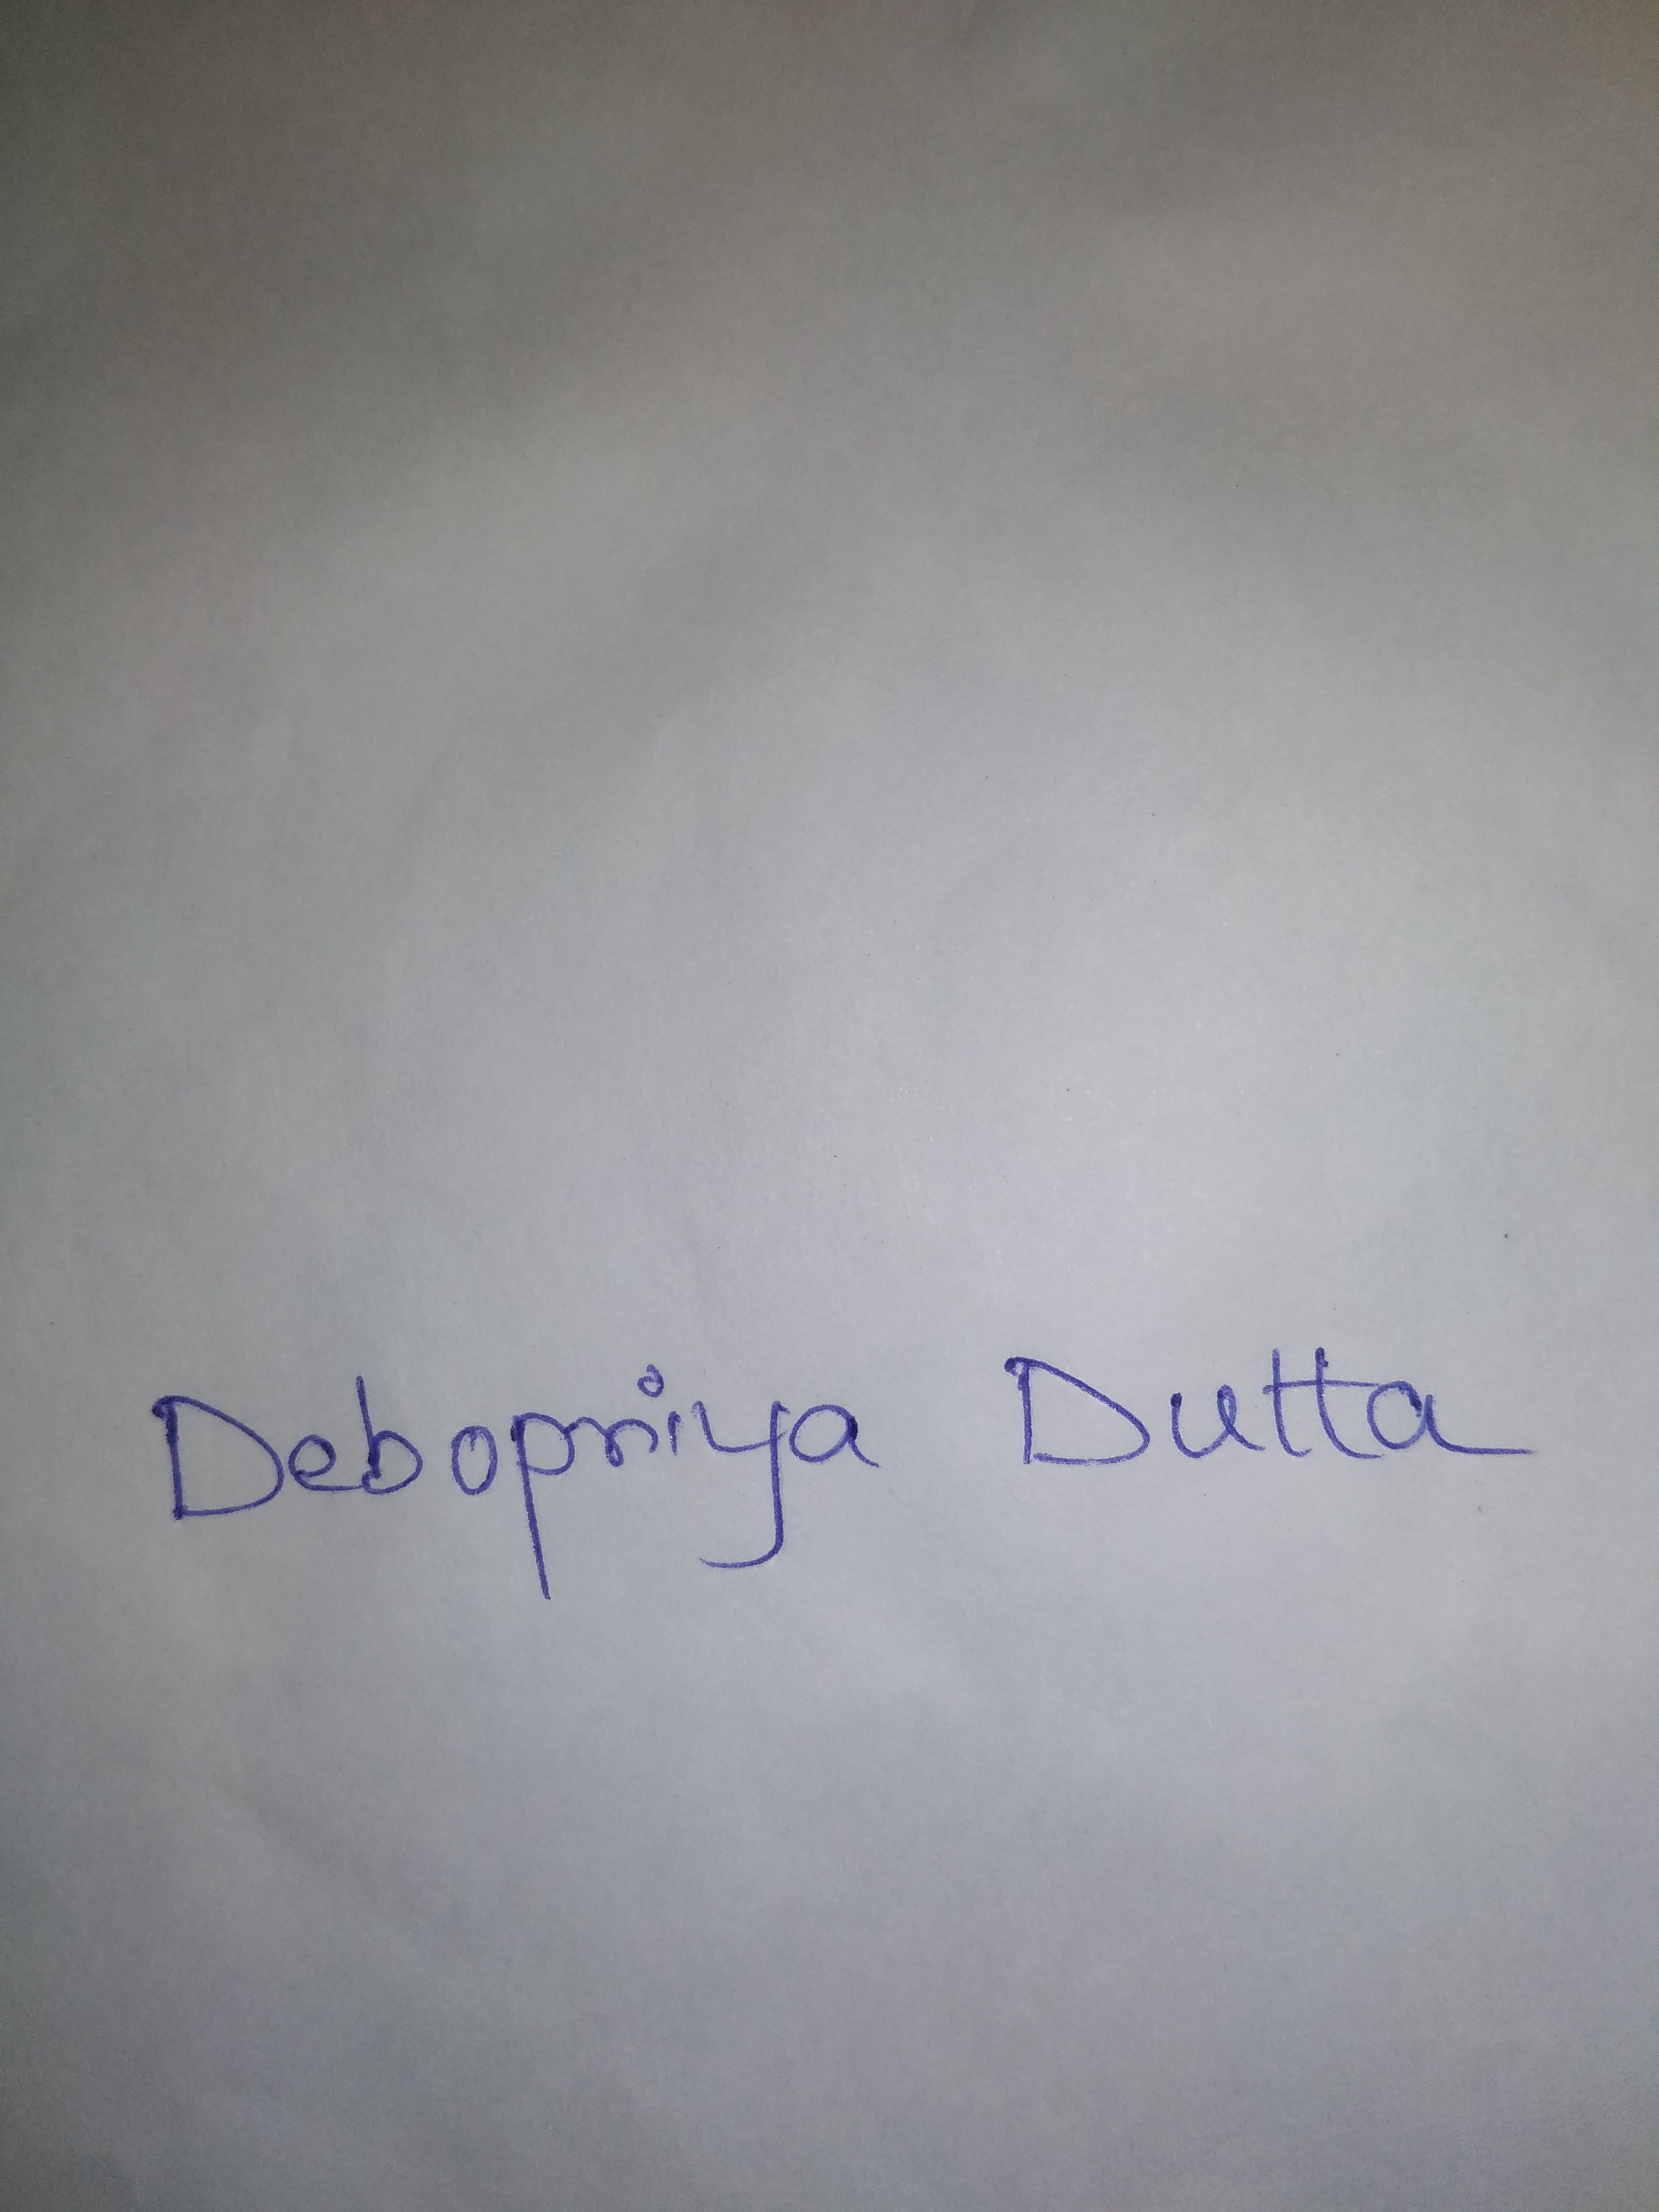 Debopriya Dutta